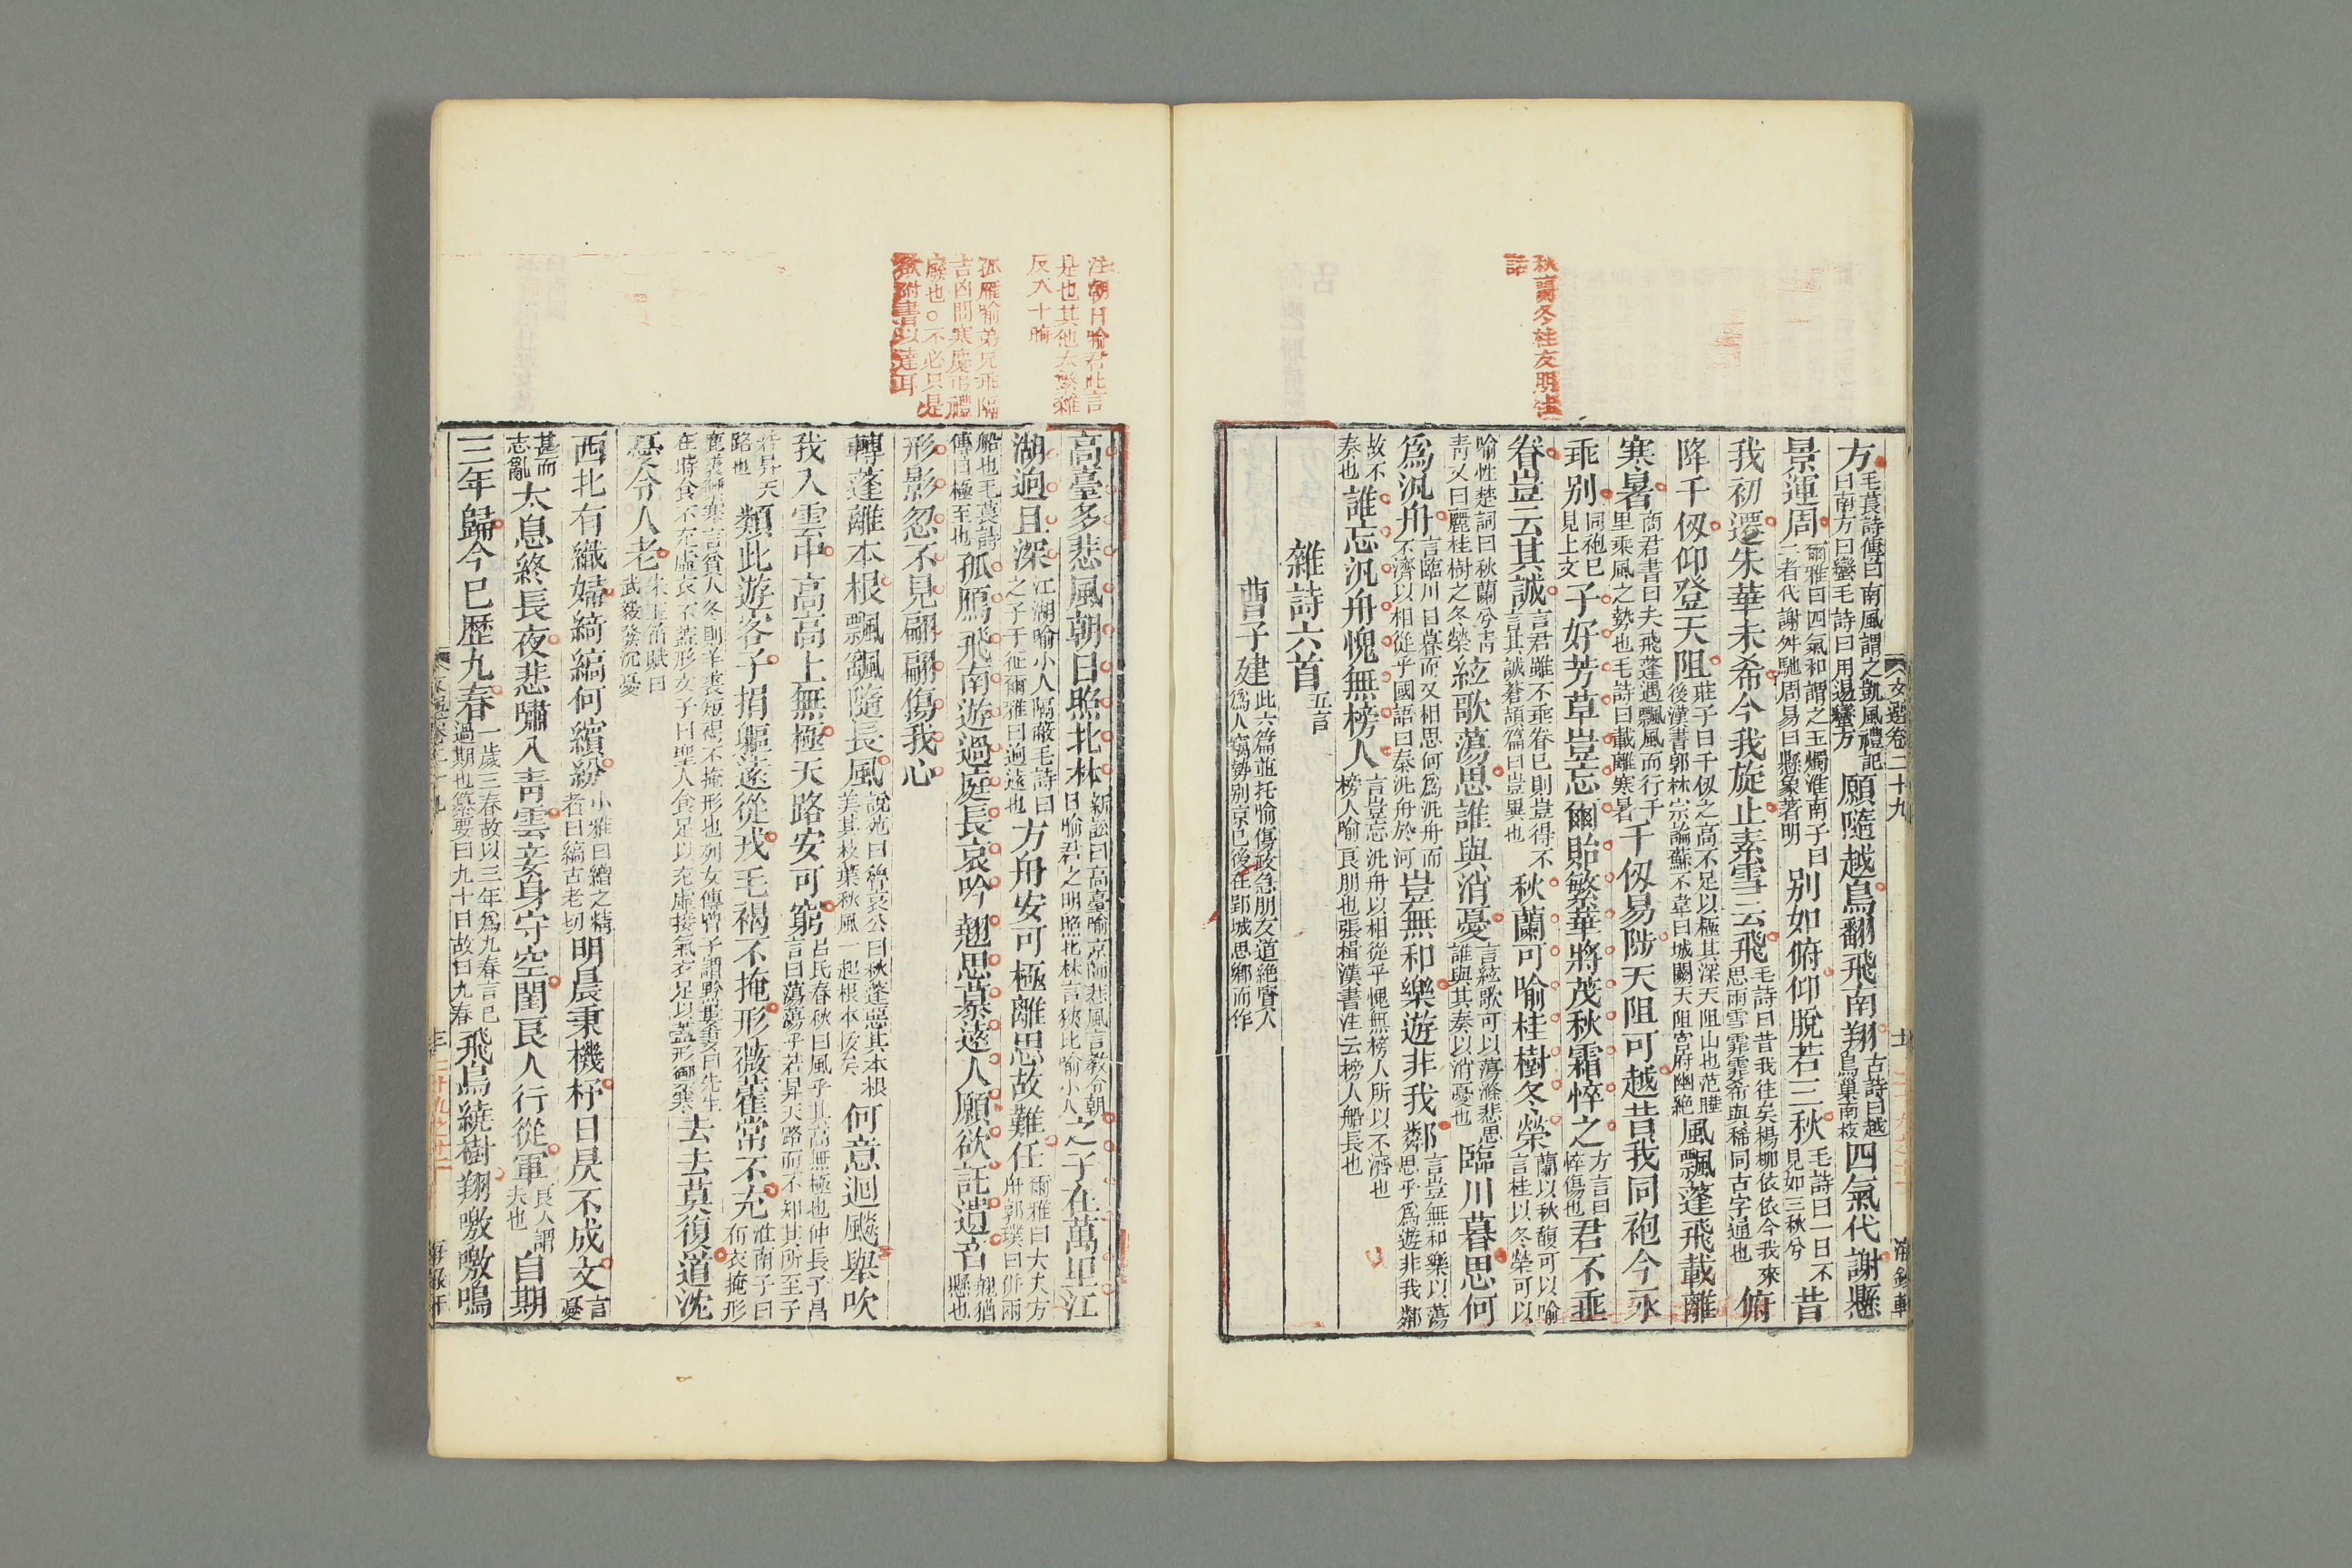 文選卷二十九
十一
海錄軒
方毛萇詩傳曰南風謂之凱風禮記曰南方曰蠻毛詩曰用逷蠻方願隨越鳥翻飛南翔古詩曰越鳥巢南枝四氣代謝懸
景運周爾雅曰四氣和謂之玉燭淮南子曰二者代謝舛馳周易曰懸象著明别如俯仰脫若三秋毛詩曰一日不見如三秋兮昔
我初遷朱華未希今我旋止素雪云飛毛詩曰昔我往矣楊柳依依今我來思雨雪霏霏希與稀同古字通也俯
降千仭仰登天阻莊子曰千仭之高不足以極其深天阻山也范曄後漢書郭林宗論蘇不韋曰城闕天阻宮府幽絶風飄蓬飛載離
寒暑商君書曰夫飛蓬遇飄風而行千里乘風之勢也毛詩曰載離寒暑千仭易陟天阻可越昔我同袍今永
乖别同袍已見上文子好芳草豈忘爾貽繁華將茂秋霜悴之方言曰悴傷也君不垂
眷豈云其誠言君雖不垂眷已則豈得不言其誠蒼頡篇曰豈冀也秋蘭可喻桂樹冬榮蘭以秋馥可以喻言桂以冬榮可以
喻性楚詞曰秋蘭兮青青又曰麗桂樹之冬榮絃歌蕩思誰與消憂言絃歌可以蕩滌悲思誰與其奏以消憂也臨川暮思何
爲汎舟言臨川日暮而又相思何爲汎舟而不濟以相從乎國語曰秦汎舟於河豈無和樂遊非我鄰言豈無和樂以蕩思乎爲遊非我鄰
故不奏也誰忘汎舟愧無榜人言豈忘汎舟以相從乎愧無榜人所以不濟也榜人喻良朋也張楫漢書注云榜人船長也
雜詩六首五言
曹子建此六篇並托喻傷政急朋友道絶賢人爲人竊勢别京已後在郢城思鄉而作
秋蘭冬桂友朋
話
高臺多悲風朝日照北林新語曰高臺喻京師悲風言教令朝日喻君之明照北林言狹比喻小人之子在萬里江
湖迥且深江湖喻小人隔蔽毛詩曰之子于征爾雅曰迥遠也方舟安可極離思故難任爾雅曰大夫方舟郭璞曰併兩
船也毛萇詩傳曰極至也孤鴈飛南遊過庭長哀吟翹思慕遠人願欲託遺音翹猶懸也
形影忽不見翩翩傷我心
轉蓬離本根飄颻隨長風說苑曰魯哀公曰秋蓬惡其本根美其枝葉秋風一起根本拔矣何意迴飈舉吹
我入雲中高高上無極天路安可窮呂氏春秋曰風乎其高無極也仲長子昌言曰蕩蕩乎若昇天路而不知其所至子
若昇天路也類此遊客子捐軀遠從戎毛褐不掩形薇藿常不充淮南子曰布衣掩形
鹿裘禦寒言貧人冬則羊裘短褐不掩形也列女傳曾子謂黔婁妻曰先生在時食不充虛衣不蓋形文子曰聖人食足以充虛接氣衣足以蓋形禦寒去去莫復道沈
憂令人老宋玉笛賦曰武毅發沉憂
西北有織婦綺縞何繽紛小雅曰繒之精者曰縞古老切明晨秉機杼日昃不成文言憂
甚而志亂太息終長夜悲嘯入青雲妾身守空閨良人行從軍良人謂夫也自期
三年歸今已歷九春一歲三春故以三年爲九春言已過期也纂要曰九十日故曰九春飛鳥繞樹翔噭噭鳴
注朝日喻君此言
是也其他太繁雜
反 喻
孤雁喻弟兄乖隔
吉凶問寒慶弔禮
廢也○不必只是
欲附書以達耳